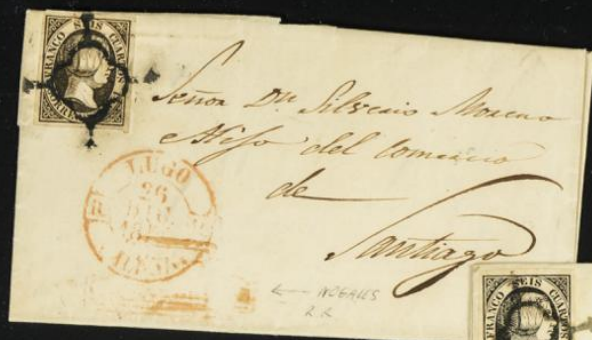 FRANCO SEIS CUARTOS
Señor Dn Silverio Moreno
del Comercio
de
Santiago
LUGO
26
NOGALES
R R
FRANCO SEIS CUARTOS